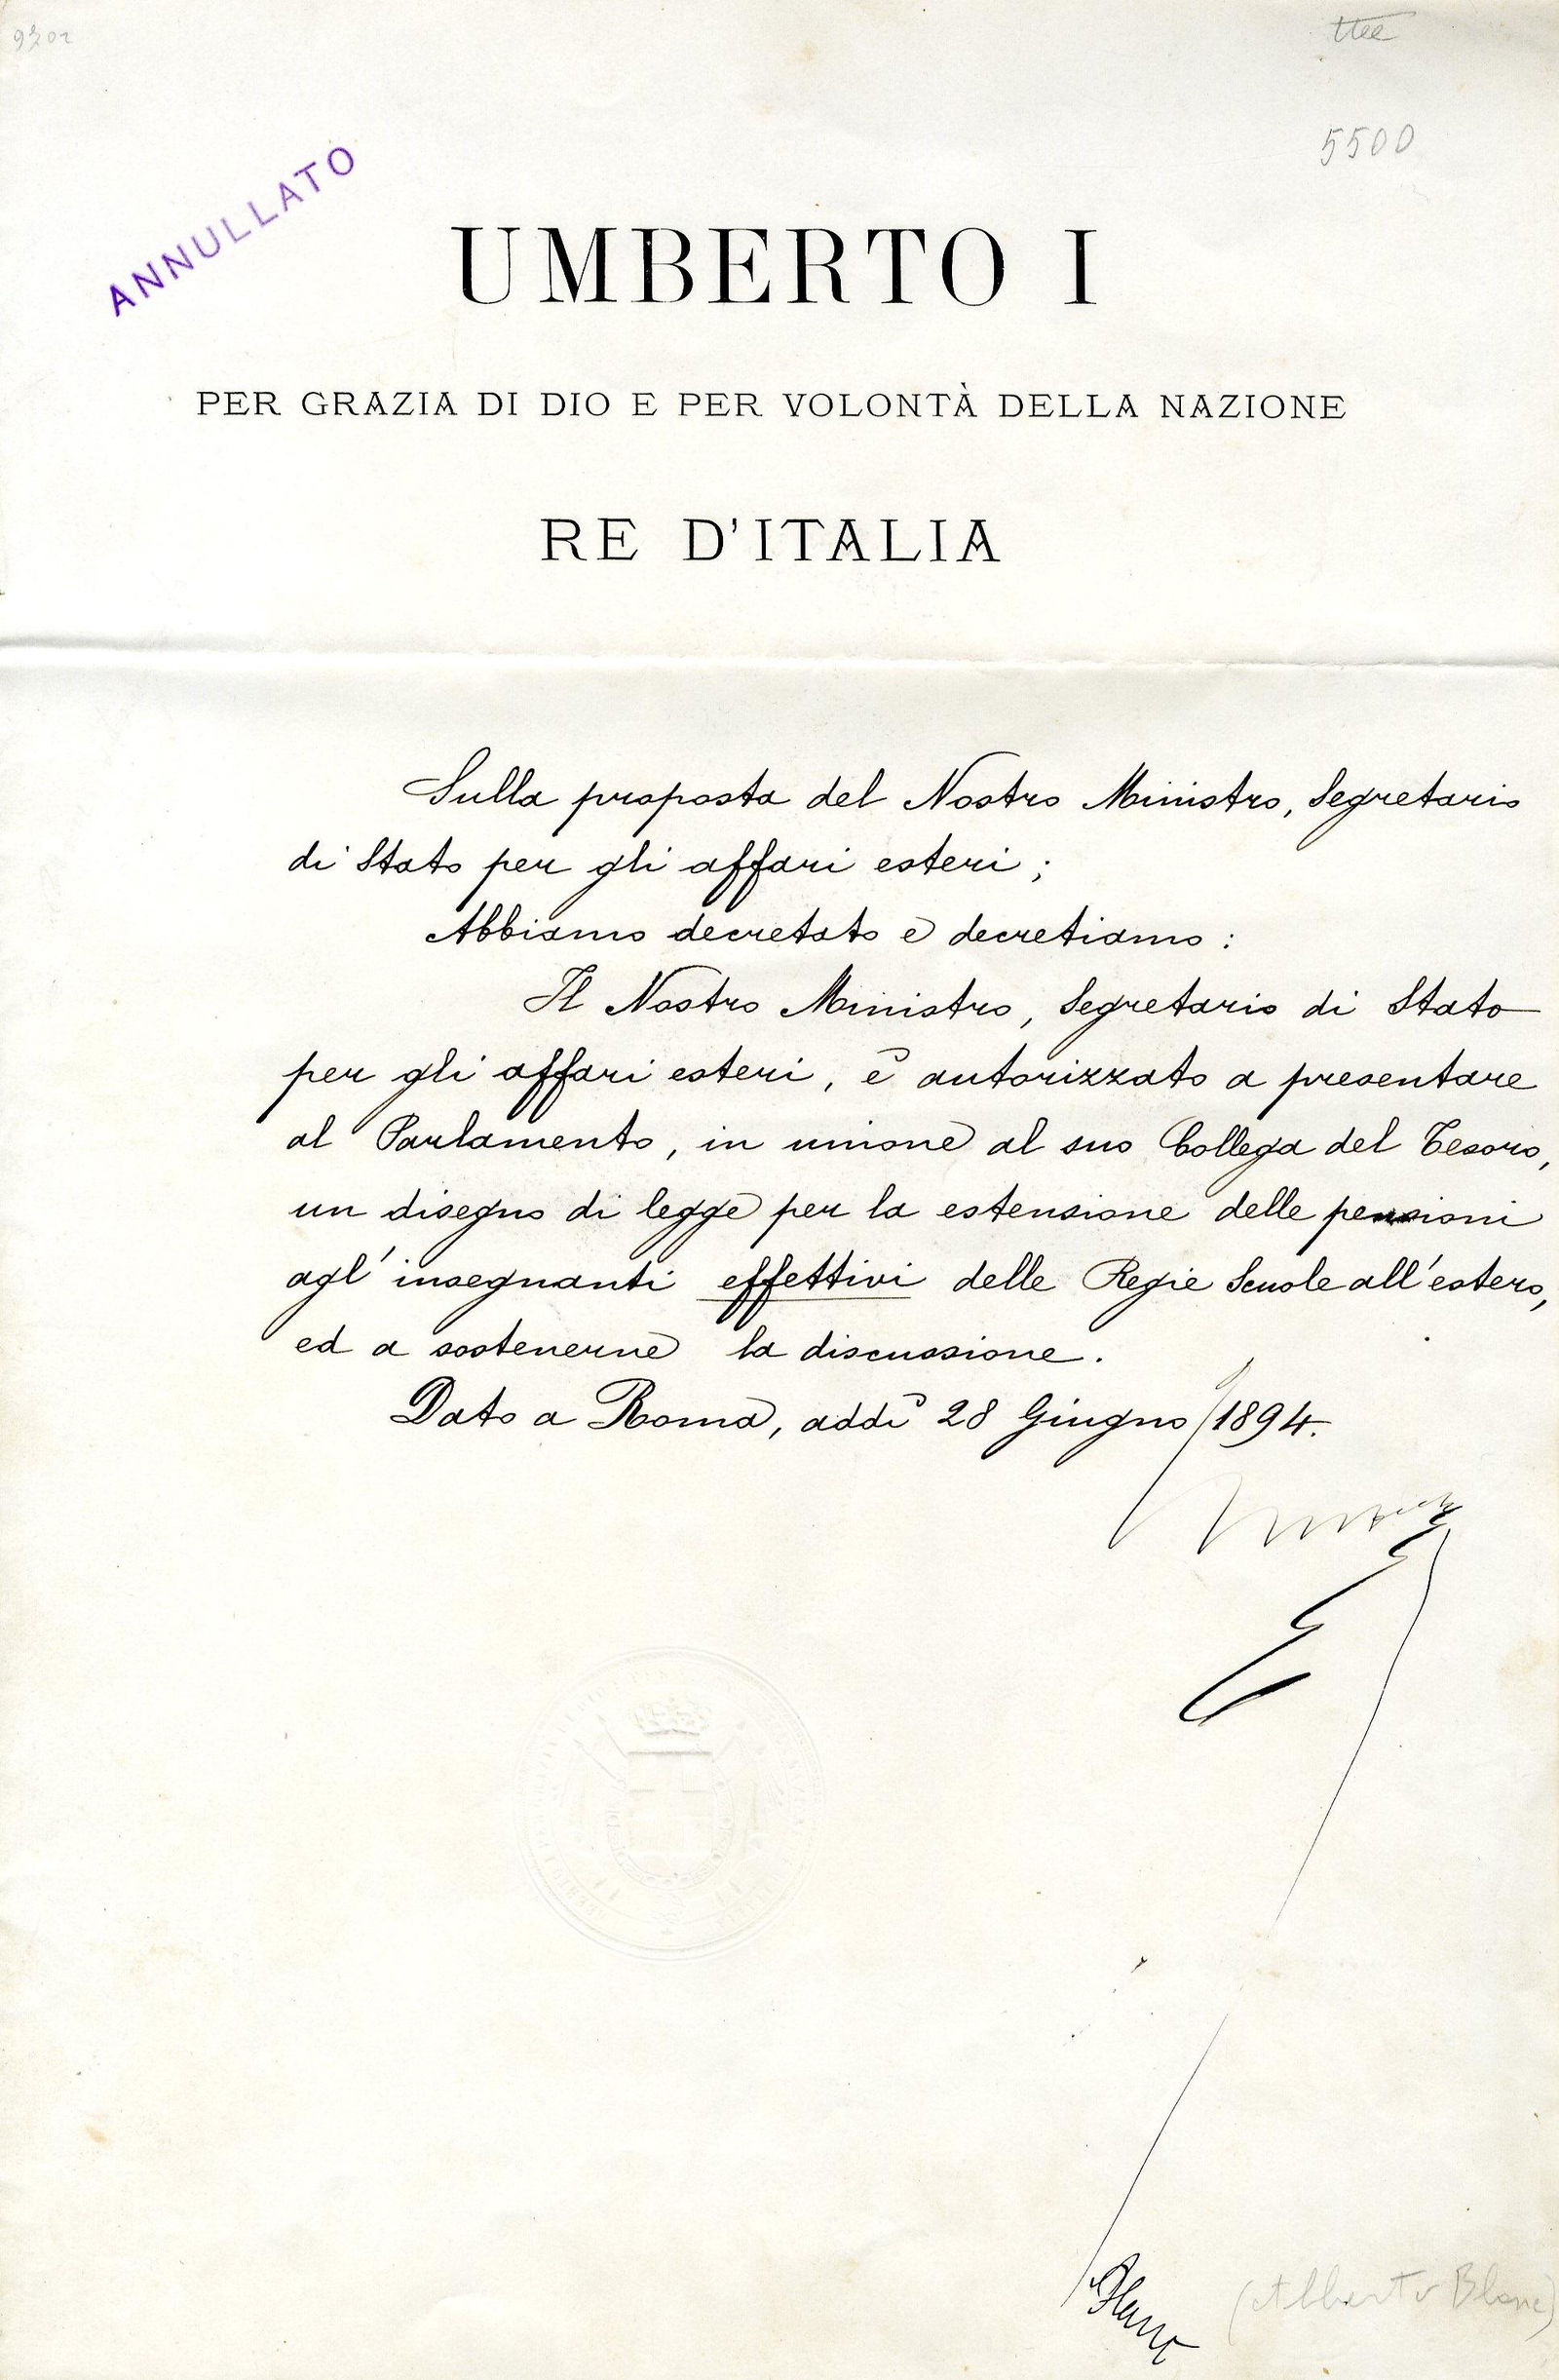 5500
ANNULLATO
UMBERTO I
PER GRAZIA DI DIO E PER VOLONTÀ DELLA NAZIONE
RE D'ITALIA
Sulla proposta del Nostro Ministro, Segretario
di Stato per gli affari esteri;
Abbiamo decretato e decretiamo:
Il Nostro Ministro, Segretario di Stato
per gli affari esteri, è autorizzato a presentare
al Parlamento, in unione al suo Collega del Tesoro,
un disegno di legge per la estensione delle pensioni
agl'insegnanti effettivi delle Regie Scuole all'estero,
ed a sostenerne la discussione.
Dato a Roma, addì 28 Giugno 1894.
Umberto
Blanc
(Alberto Blanc)